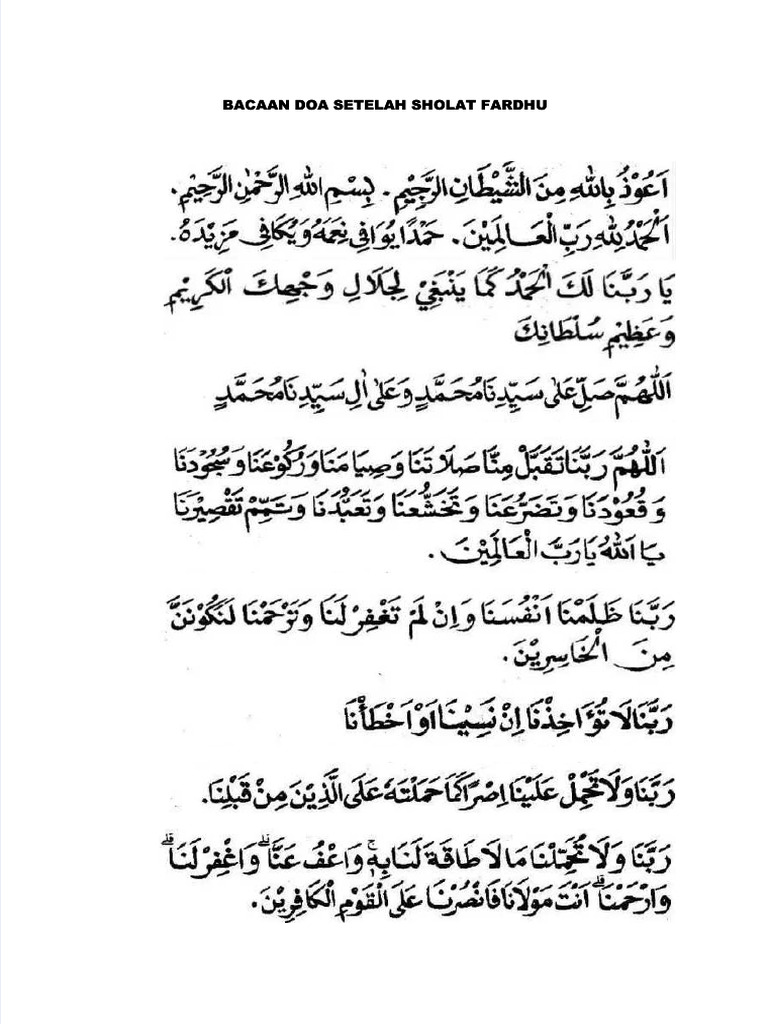 BACAAN DOA SETELAH SHOLAT FARDHU
اَعُوْذُ بِاللهِ مِنَ الشَّيْطَانِ الرَّجِيْمِ. بِسْمِ اللهِ الرَّحْمٰنِ الرَّحِيْمِ.
اَلْحَمْدُ لِلّٰهِ رَبِّ الْعَالَمِيْنَ. حَمْدًا يُوَافِي نِعَمَهُ وَيُكَافِئُ مَزِيْدَهُ.
يَا رَبَّنَا لَكَ الْحَمْدُ كَمَا يَنْبَغِيْ لِجَلَالِ وَجْهِكَ الْكَرِيْمِ
وَعَظِيْمِ سُلْطَانِكَ
اَللّٰهُمَّ صَلِّ عَلٰى سَيِّدِنَا مُحَمَّدٍ وَعَلٰى اٰلِ سَيِّدِنَا مُحَمَّدٍ
اَللّٰهُمَّ رَبَّنَا تَقَبَّلْ مِنَّا صَلَاتَنَا وَصِيَامَنَا وَرُكُوْعَنَا وَسُجُوْدَنَا
وَقُعُوْدَنَا وَتَضَرُّعَنَا وَتَخَشُّعَنَا وَتَعَبُّدَنَا وَتَمِّمْ تَقْصِيْرَنَا
يَا اَللهُ يَا رَبَّ الْعَالَمِيْنَ.
رَبَّنَا ظَلَمْنَا اَنْفُسَنَا وَاِنْ لَمْ تَغْفِرْ لَنَا وَتَرْحَمْنَا لَنَكُوْنَنَّ
مِنَ الْخَاسِرِيْنَ.
رَبَّنَا لَا تُؤَاخِذْنَا اِنْ نَسِيْنَا اَوْ اَخْطَأْنَا
رَبَّنَا وَلَا تَحْمِلْ عَلَيْنَا اِصْرًا كَمَا حَمَلْتَهُ عَلَى الَّذِيْنَ مِنْ قَبْلِنَا.
رَبَّنَا وَلَا تُحَمِّلْنَا مَا لَا طَاقَةَ لَنَا بِهٖۚ وَاعْفُ عَنَّاۗ وَاغْفِرْ لَنَاۗ
وَارْحَمْنَاۗ اَنْتَ مَوْلَانَا فَانْصُرْنَا عَلَى الْقَوْمِ الْكَافِرِيْنَ.